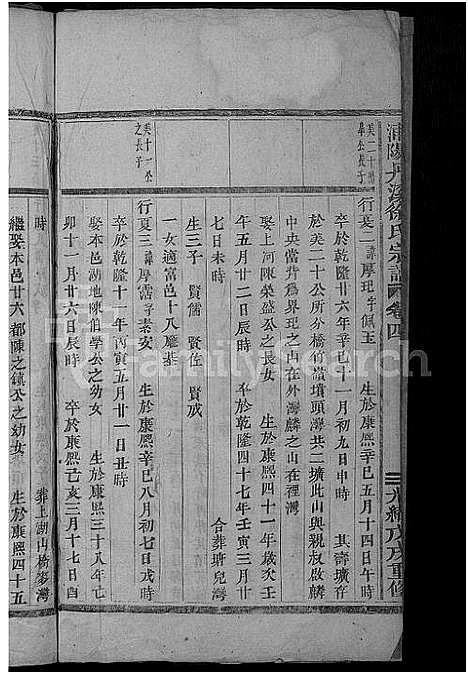 浦陽丹溪徐氏宗譜 卷四 光緒戊戌重修
美二十諱
阜公長子
行夏二 諱厚玘 字佩玉 生於康熙辛巳五月十四日午時
卒於乾隆廿六年辛巳十一月初九日申時 其壽壙存
於美二十公所分橋竹嶺墳頭灣共二壙此山與親叔啟麟
中央當背為界玘之山在外灣麟之山在裡灣
娶上河陳榮盛公之長女 生於康熙四十一年歲次壬
午五月二日時 卒於乾隆四十七年壬寅三月廿
七日未時 合葬塘兒灣
生三子 賢儒 賢佐 賢戒
一女適富邑十八廳葉
美十一公
之長子
行夏三 諱厚霑 字素安 生於康熙辛巳八月初七日戌時
卒於乾隆十一年丙寅五月廿一日丑時
娶本邑湖地陳伯學公之女 生於康熙三十八年己
卯十一月廿六日辰時 卒於康熙己亥三月十七日酉
時 葬上湖山橋彭灣
繼娶本邑廿六都陳之鎮公之幼女 生於康熙四十五
FamilySearch